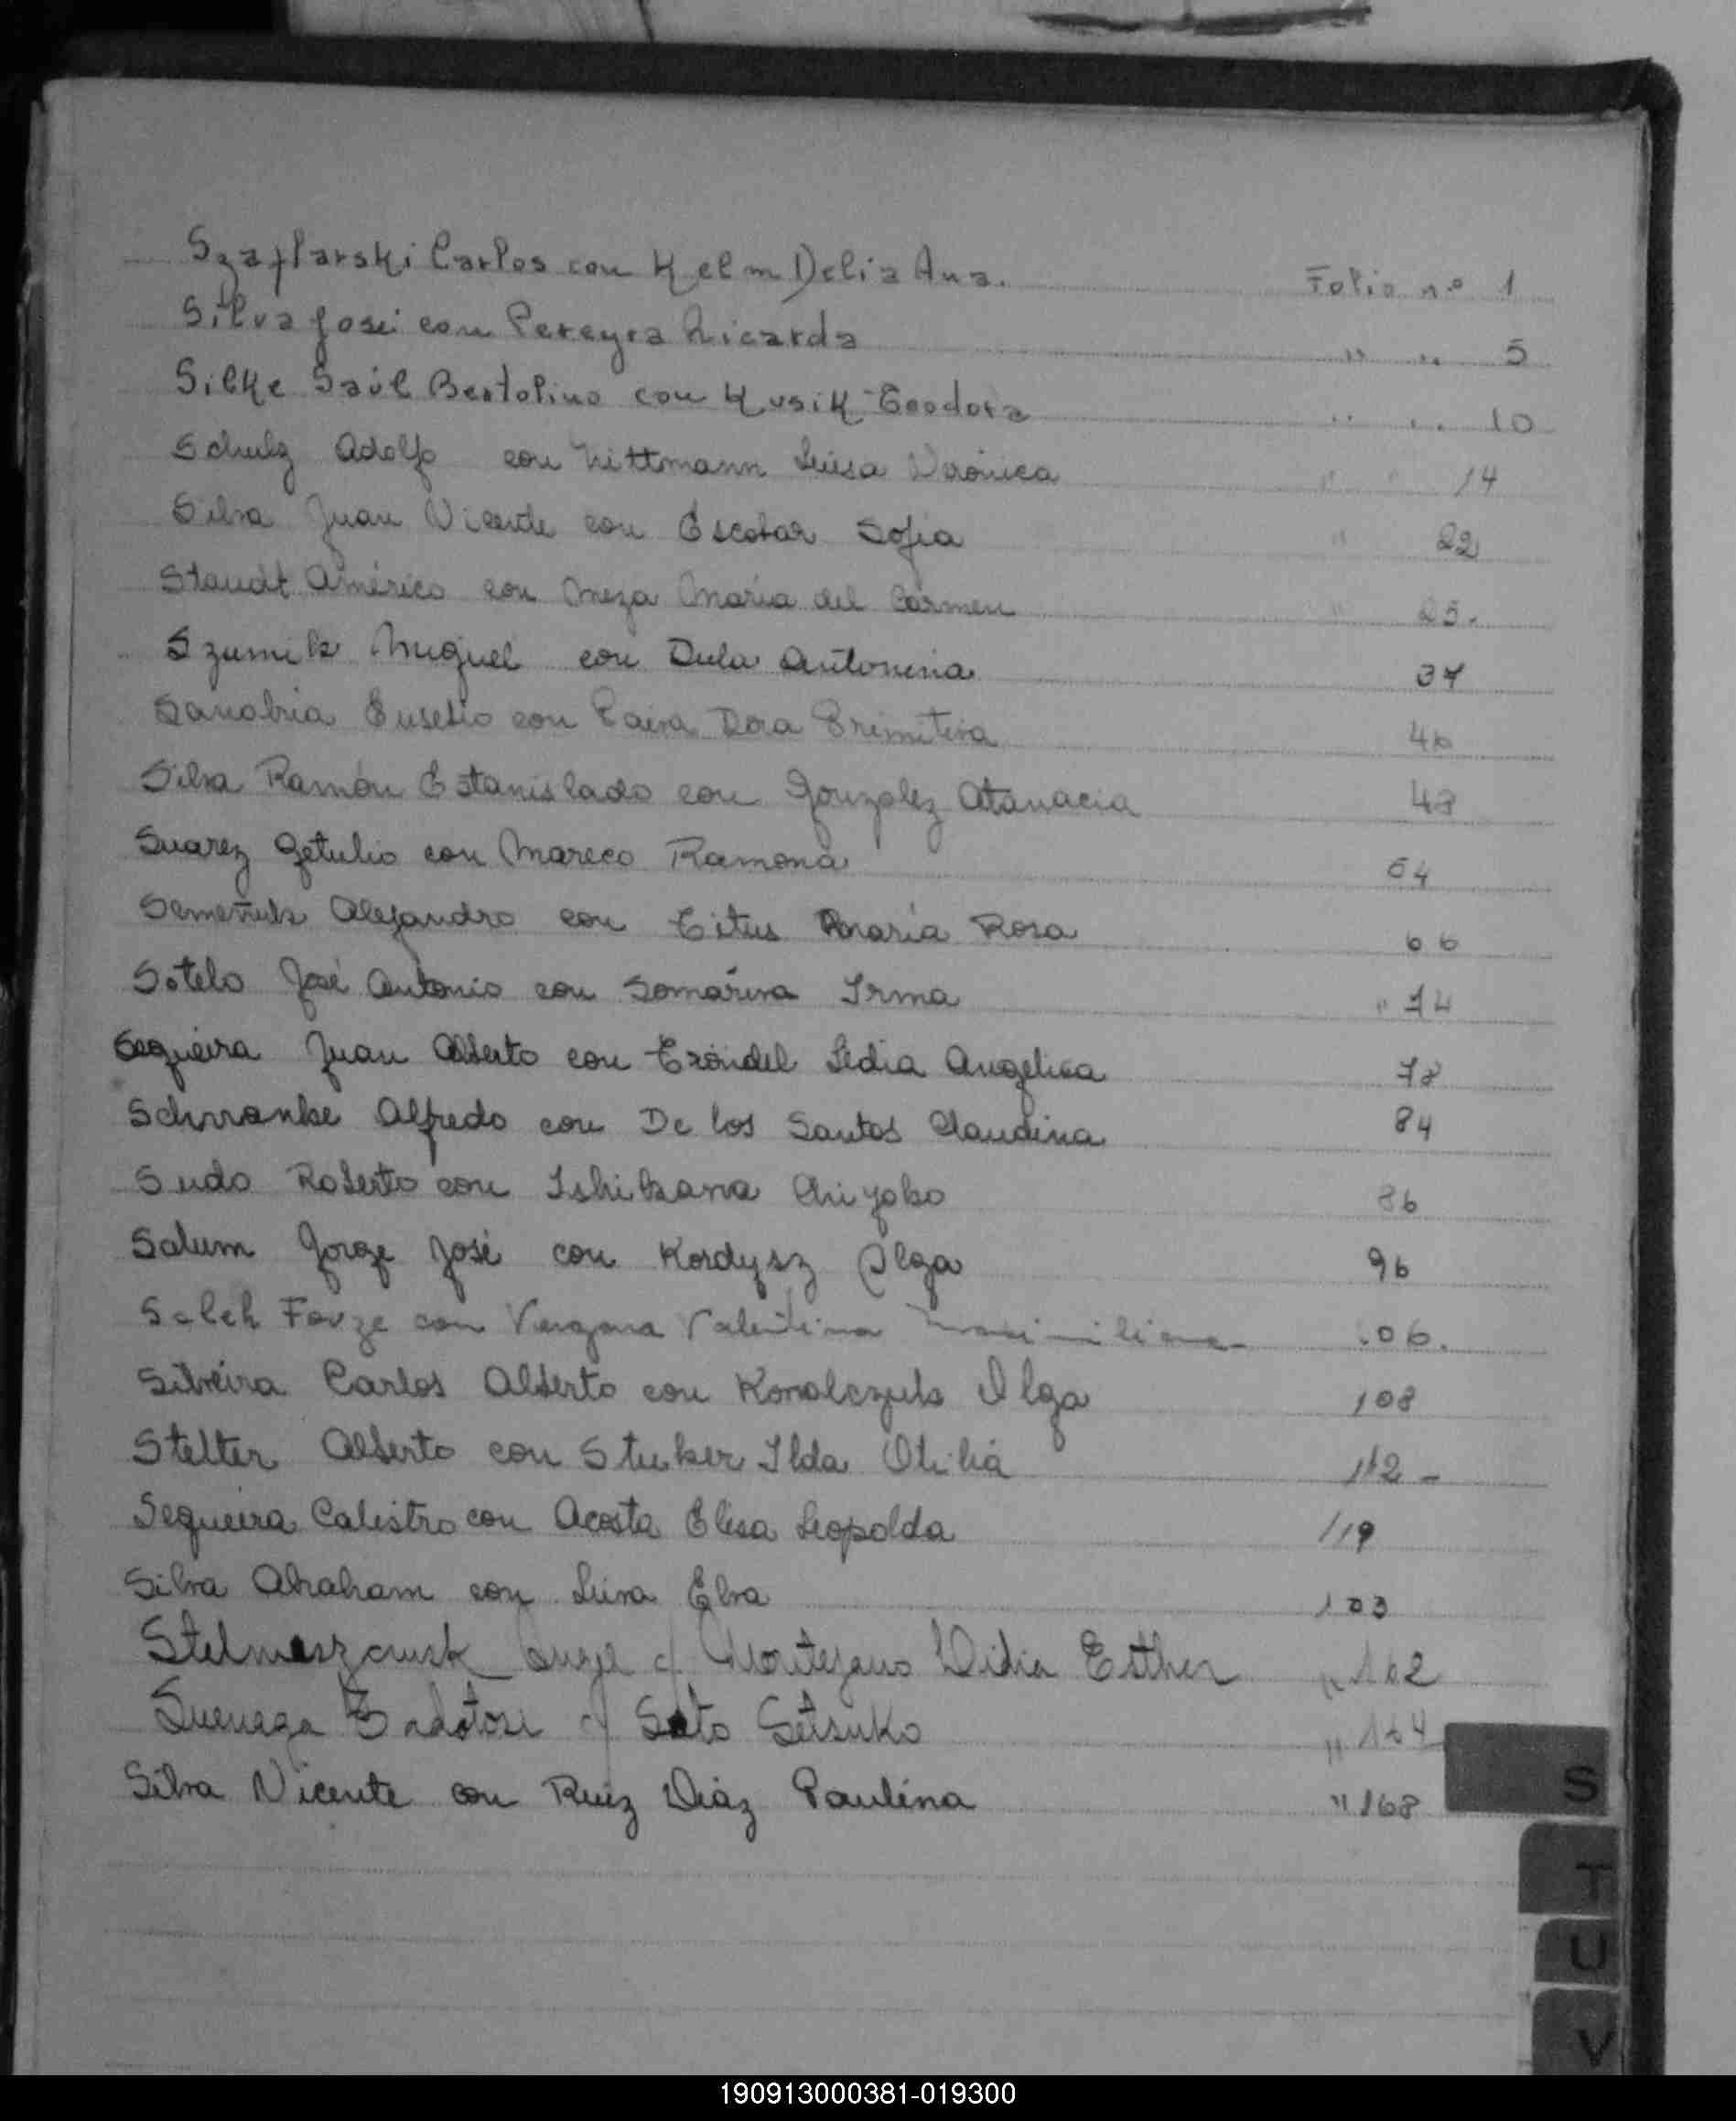 Szaflarski Carlos con Kelm Delia Ana. Folio nº 1
Silva José con Pereyra Ricarda " " 5
Silke Saúl Bertolino con Kusik Teodora " " 10
Schulz Adolfo con Zittmann Luisa Verónica " " 14
Silva Juan Vicente con Escobar Sofia " 22
Staudt Américo con Meza María del Carmen " 25.
Szumik Miguel con Dula Antonina 37
Sanabria Eusebio con Paiva Dora Primitiva 46
Silva Ramón Estanislado con Gonzalez Atanacia 48
Suarez Getulio con Mareco Ramona 64
Semeñuk Alejandro con Titus María Rosa 66
Sotelo José Antonio con Somariva Irma " 74
Sequeira Juan Alberto con Tröndel Ledia Angelica 78
Schwanke Alfredo con De los Santos Claudina 84
Sudo Roberto con Ishikawa Chiyoko 86
Salum Jorge José con Kordysz Olga 96
Saleh Fauze con Vergara Valentina Maximiliana 106.
Silveira Carlos Alberto con Kowalczuk Olga 108
Stelter Alberto con Stuker Ilda Otilia 112 -
Sequeira Calistro con Acosta Elisa Leopolda 119
Silva Abraham con Leiva Elva 103
Stelmaszczuk c/ Esther " 162
Suenaga Tadotosi c/ Sato Setsuko " 164
Silva Vicente con Ruiz Diaz Paulina " 168
S
T
U
V
190913000381-019300